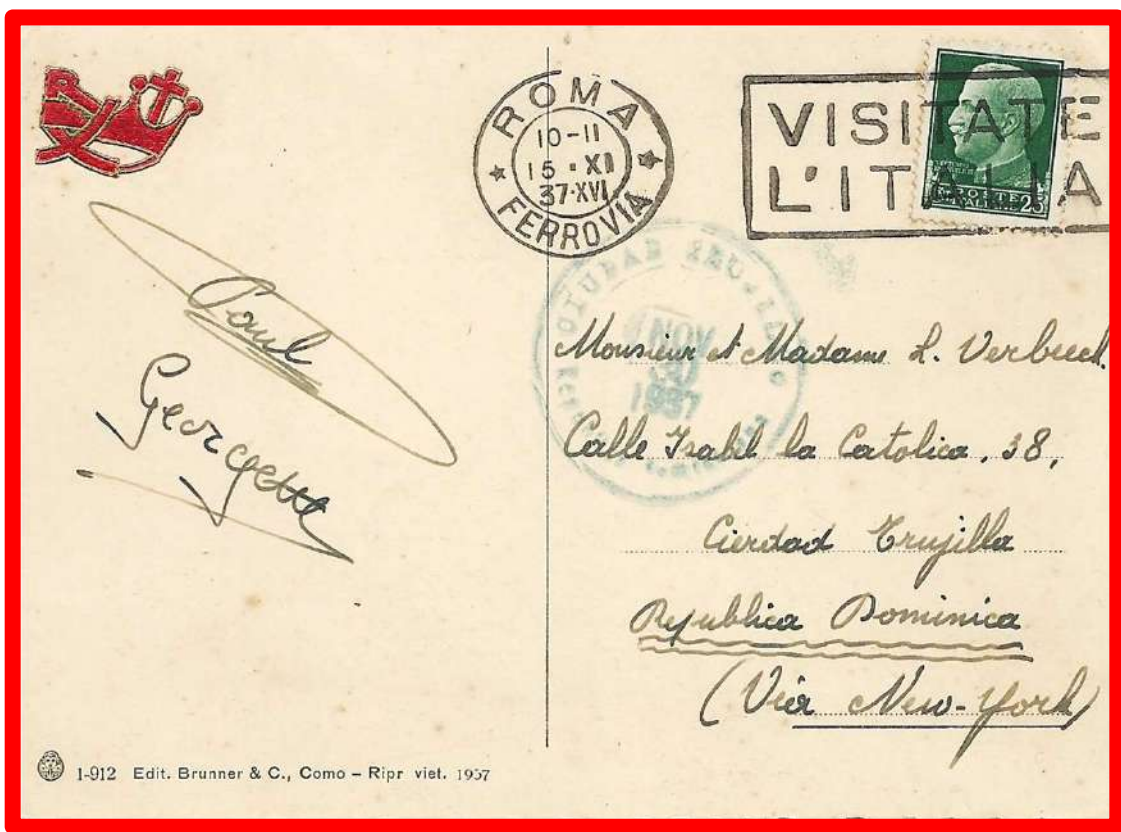 ROMA
10-11
15 · XI
37·XVI
FERROVIA
VISITATE
L'ITALIA
25
NOV
30
1937
Paul
Georgette
Monsieur et Madame L. Verbeeck.
Calle Isabel la Catolica, 38,
Ciudad Trujillo
Republica Dominica
(Via New-York)
1-912 Edit. Brunner & C., Como – Ripr viet. 1937